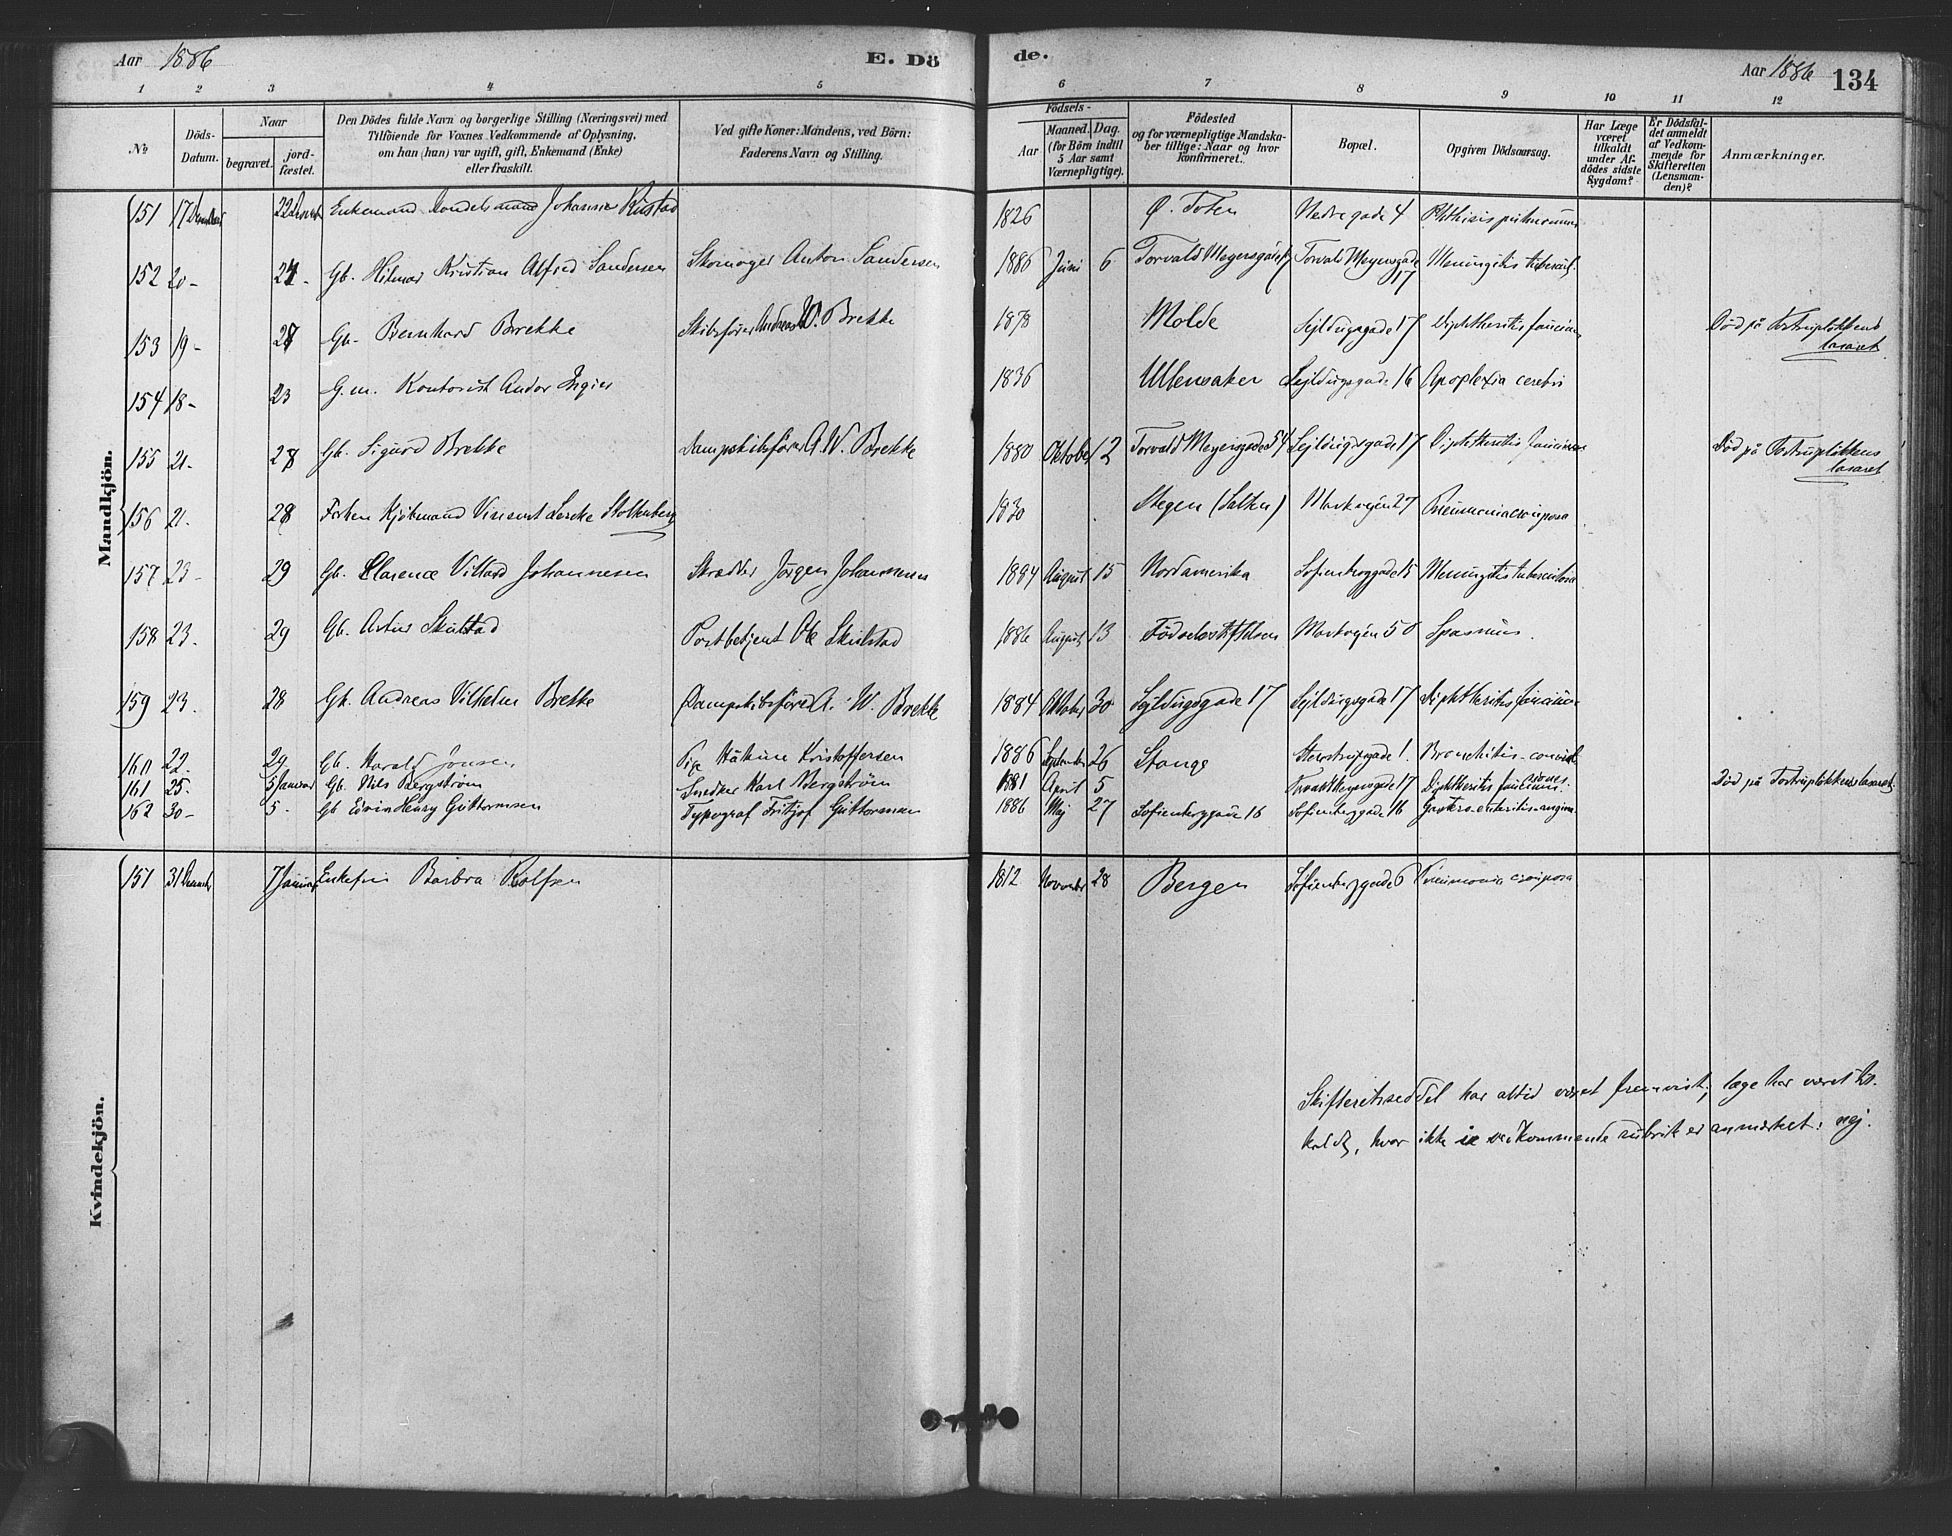 Aar 1886 E. Dö de. Aar 1886 134
1 2 3 4 5 6 7 8 9 10 11 12
No.
Döds-Datum.
Naar
begravet. jordfæstet.
Den Dödes fulde Navn og borgerlige Stilling (Næringsvei) med
Tilföiende for Voxnes Vedkommende af Oplysning,
om han (hun) var ugift, gift, Enkemand (Enke)
eller fraskilt.
Ved gifte Koner: Mandens, ved Börn:
Faderens Navn og Stilling.
Födsels-
Aar
Maaned. Dag.
(for Börn indtil
5 Aar samt
Værnepligtige).
Födested
og for værnepligtige Mandskaber tillige: Naar og hvor
konfirmeret.
Bopæl.
Opgiven Dödsaarsag.
Har Læge
været
tilkaldt
under Afdödes sidste
Sygdom?
Er Dödsfaldet anmeldt
af Vedkommende for
Skifteretten
(Lensmanden)?
Anmærkninger.
Mandkjön.
151 17 December 22 Enkemand Handelsmand Johannes Rustad 1826 Ø. Toten Nedregade 4 Phthisis pulmonum
152 20 - 24 - Gb. Hilmar Kristian Alfred Sandersen Skomager Anton Sandersen 1886 Juni 6 Torvald Meyersgade 17 Torvald Meyersgade 17 Meningitis tubercul.
153 19 - 27 Gb. Bernhard Brekke Skibsfører Andreas W. Brekke 1878 Molde Sejldugsgade 17 Diphtheritis faucium Død på Tostrupløkkens lasaret
154 18 - 23 G.m. Kontorist Andor 1836 Ullensaker Sejldugsgade 16 Apoplexia cerebri
155 21 - 28 Gb. Sigurd Brekke Dampskibsfører A. W. Brekke 1880 Oktober 12 Torvald Meyersgade 54 Sejldugsgade 17 Diphtheritis faucium Død på Tostrupløkkens lasaret
156 21 - 28 Kjøbmand Vincent Lerche Stoltenberg 1830 Stegen (Salten) Markvejen 27 Pneumonia crouposa
157 23 - 29 Gb. Clarence Villard Johannesen Skrædder Jørgen Johannesen 1884 August 15 Nordamerika Sofienberggade 15 Meningitis tuberculosa
158 23 - 29 Gb. Artur Skulstad Postbetjent Ole Skulstad 1886 August 13 Fødselsstiftelsen Markvejen 50 Spasmus.
159 23 - 28 Gb. Andreas Vilhelm Brekke Dampskibsfører A. W. Brekke 1884 Oktober 30 Sejldugsgade 17 Sejldugsgade 17 Diphtheritis faucium
160 22 - 29 Gb. Harald Jonsen Pige Kristoffersen 1886 September 26 Stange Steenstrupgade 1. Bronchitis - convulsiones
161 25 - 5 Januar Gb. Nils Bergstrøm Snedker Karl Bergstrøm 1881 April 5 Torvald Meyersgade 17 Diphtheritis faucium Død på Tostrupløkkens lasaret
162 30 - 5 - Gb. Edvin Henry Guttormsen Typograf Fritjof Guttormsen 1886 Maj 27 Sofienberggade 16 Sofienberggade 16 Gastro-enteritis - angina
Kvindekjön.
151 31 December 7 Januar Enkefru Barbra Rolfsen 1812 November 28 Bergen Sofienberggade 6 Pneumonia crouposa
Skifteretsseddel har altid været fremvist; læge har været til-
kaldt, hvor ikke i vedkommende rubrik er anmærket: nej.